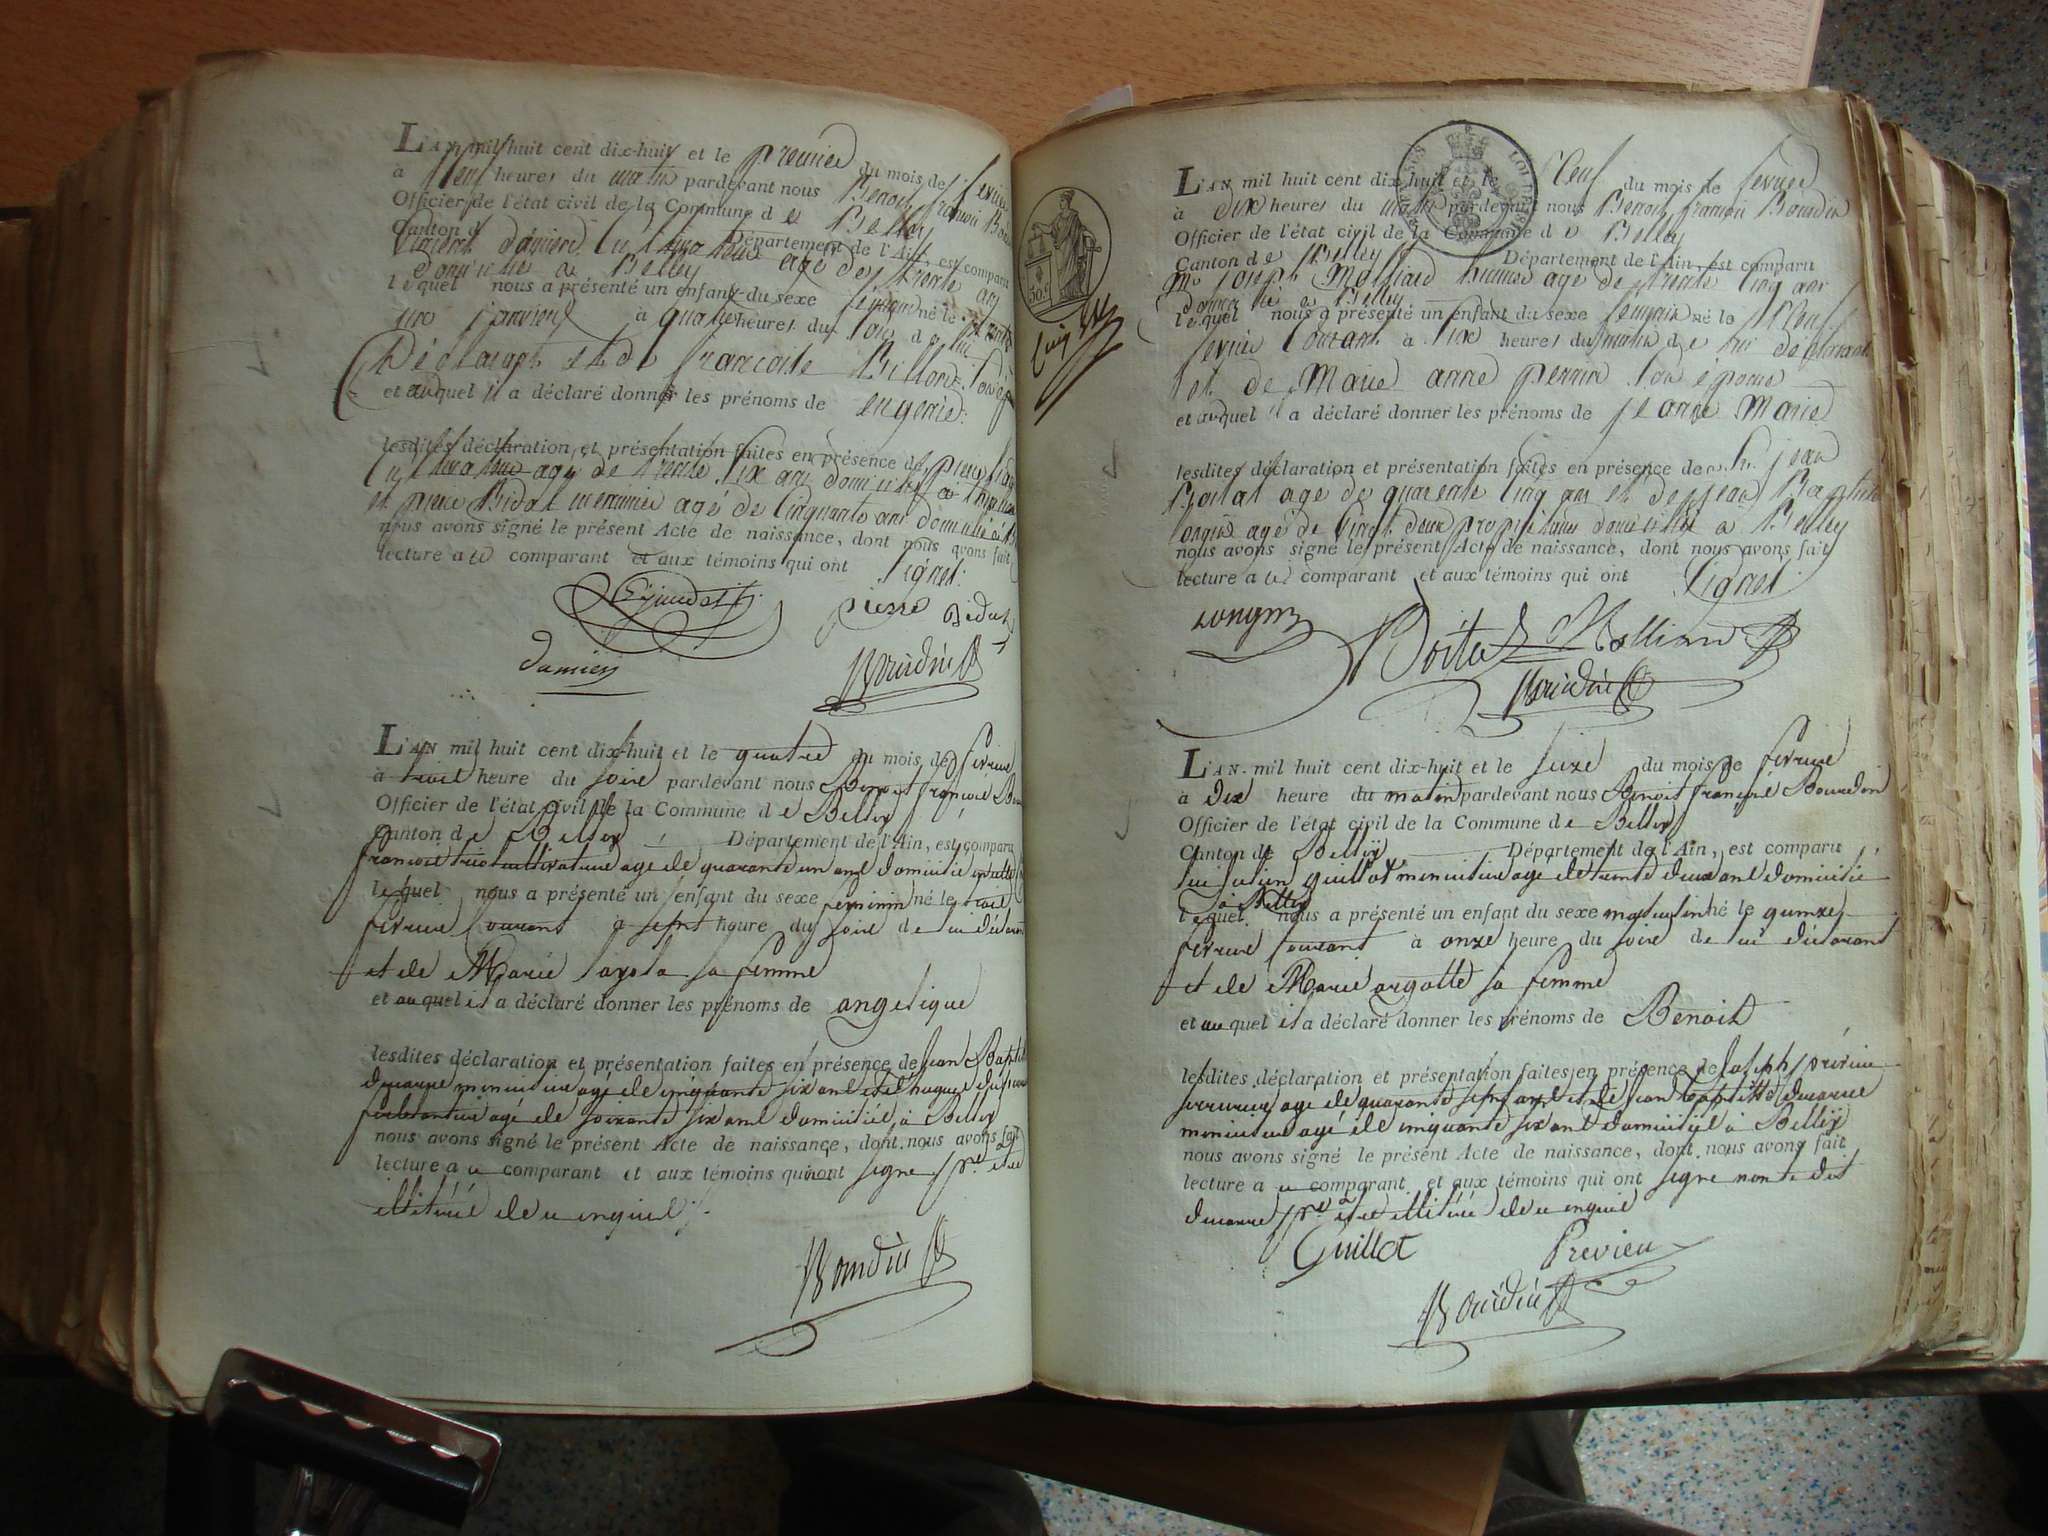 L'AN mil huit cent dix-huit et le premier du mois de fevrier
à neuf heures du matin pardevant nous Benoit françois
Officier de l'état civil de la Commune de Belley
Canton d Département de l'Ain, est comparu
Damien Cultivateur agé de trente ans
domicilié a Belley
lequel nous a présenté un enfant du sexe feminin né le trente
un janvier à quatre heures du soir de lui
Déclarant et de françoise Billond
et auquel il a déclaré donner les prénoms de eugenie
lesdites déclaration et présentation faites en présence de pierre
Cultivateur agé de trente six ans domicilié à
et pierre Bidat menuisier agé de Cinquante ans domicilié à
nous avons signé le présent Acte de naissance, dont nous avons fait
lecture a ce comparant et aux témoins qui ont signé.
pierre Bidat
damien
Bourdin
L'AN mil huit cent dix-huit et le quatre du mois de fevrier
à trois heure du soire pardevant nous Benoit françois
Officier de l'état civil de la Commune de Belley
Canton de Belley Département de l'Ain, est comparu
françois cultivateur age de quarante un ans domicilié
lequel nous a présenté un enfant du sexe feminin né le trois
fevrier courant à sept heure du soire de lui déclarant
et de Marie sa femme
et auquel il a déclaré donner les prénoms de angelique
lesdites déclaration et présentation faites en présence de jean Baptiste
ducarre menuisier agé de cinquante six ans et
agé de soixante six ans domiciliés à Belley
nous avons signé le présent Acte de naissance, dont nous avons fait
lecture a ce comparant et aux témoins qui ont signe
illitéré de ce enquis
Bourdin
L'AN mil huit cent dix-huit et le neuf du mois de fevrier
à dix heures du matin pardevant nous Benoit françois Bourdin
Officier de l'état civil de la Commune de Belley
Canton de Belley Département de l'Ain, est comparu
joseph Molliard agé de trente cinq ans
domicilié a Belley
lequel nous a présenté un enfant du sexe feminin né le neuf
fevrier Courant à six heures du matin de lui déclarant
et de Marie anne perrin son epouse
et auquel il a déclaré donner les prénoms de jeanne Marie
lesdites déclaration et présentation faites en présence de jean
agé de quarante Cinq ans et de jean Baptiste
Longin agé de vingt deux propriétaires domiciliés a Belley
nous avons signé le présent Acte de naissance, dont nous avons fait
lecture a ce comparant et aux témoins qui ont signé.
Longin
Bourdin
L'AN mil huit cent dix-huit et le seize du mois de fevrier
à dix heure du matin pardevant nous Benoit françois Bourdin
Officier de l'état civil de la Commune de Belley
Canton de Belley Département de l'Ain, est comparu
guillot menuisier age de trente deux ans domicilié
à Belley
lequel nous a présenté un enfant du sexe masculin né le quinze
fevrier courant à onze heure du soire de lui déclarant
et de Marie argotte sa femme
et auquel il a déclaré donner les prénoms de Benoit
lesdites déclaration et présentation faites en présence de joseph previeu
serrurier age de quarante sept ans et de jean Baptiste ducarre
menuisier agé de cinquante six ans domiciliés à Belley
nous avons signé le présent Acte de naissance, dont nous avons fait
lecture a ce comparant et aux témoins qui ont signe non le dit
ducarre illitéré de ce enquis
Guillot Previeu
Bourdin